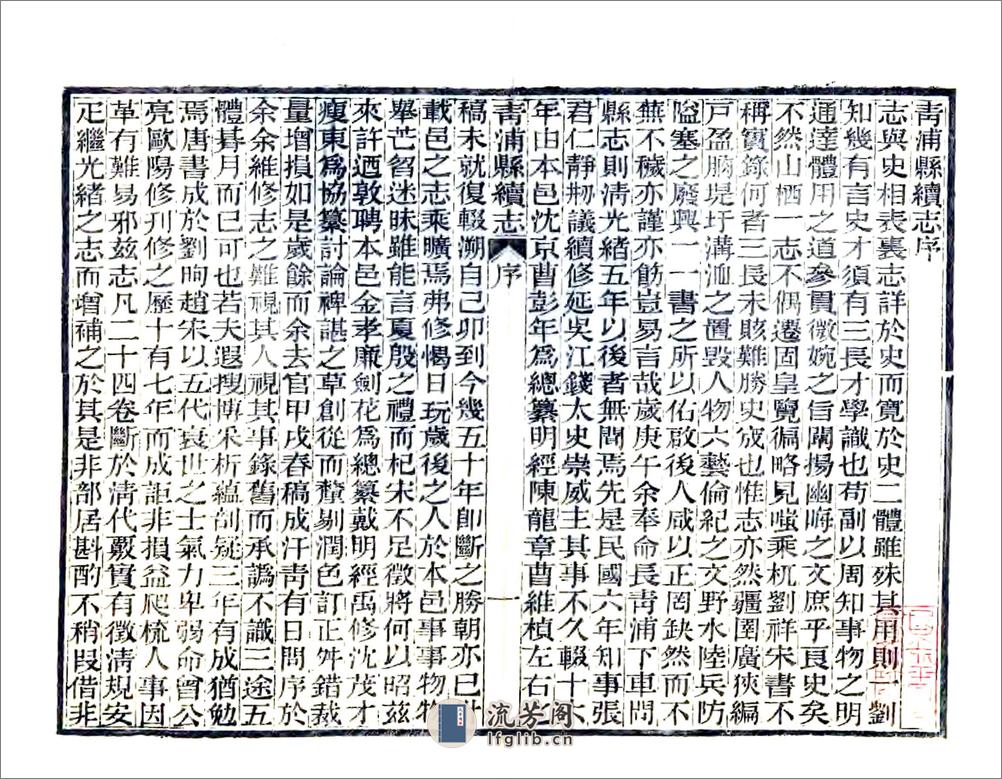 青浦縣續志序
志與史相表裏志詳於史而寬於史二體雖殊其用則
劉知幾有言史才須有三長才學識也苟副以周知事物之明
通達體用之道參貫微婉之信闡揚幽晦之文庶乎良史矣
不然山栖一志不偶遷固皇覽徧略見嗤乘杌劉祥宋書不
稱實錄何者三長未賅難勝史宬也惟志亦然疆圉廣狹編
戸盈朒堤圩溝洫之置毀人物六藝倫紀之文野水陸兵防
隘塞之廢興一一書之所以佑啟後人咸以正罔缺然而不
蕪不穢亦謹亦飭豈易言哉歲庚午余奉命長靑浦下車問
縣志則淸光緒五年以後者無聞焉先是民國六年知事張
君仁靜刱議續修延吳江錢太史崇威主其事不久輟十六
年由本邑沈京曹彭年爲總纂明經陳龍章曹維楨左右
靑浦縣續志 序 一
稿未就復輟溯自己卯到今幾五十年卽斷之勝朝亦已卅
載邑之志乘曠焉弗修愒日玩歲後之人於本邑事事物物
舉芒芴迷昧雖能言夏殷之禮而杞宋不足徵將何以昭茲
來許迺敦聘本邑金孝廉劍花爲總纂戴明經禹修沈茂才
瘦東爲協纂討論裨諶之草創從而釐剔潤色訂正舛錯裁
量增損如是歲餘而余去官甲戌春稿成汗靑有日問序於
余余維修志之難視其人視其事錄舊而承譌不識三途五
體朞月而已可也若夫遐搜博采析蘊剖疑三年有成猶勉
焉唐書成於劉昫趙宋以五代衰世之士氣力卑弱命曾公
亮歐陽修刊修之歷十有七年而成詎非損益爬梳人事因
革有難易邪茲志凡二十四卷斷於淸代覈實有徵淸規安
疋繼光緒之志而增補之於其是非部居斟酌不稍叚借非
流芳阁
lfglib.cn